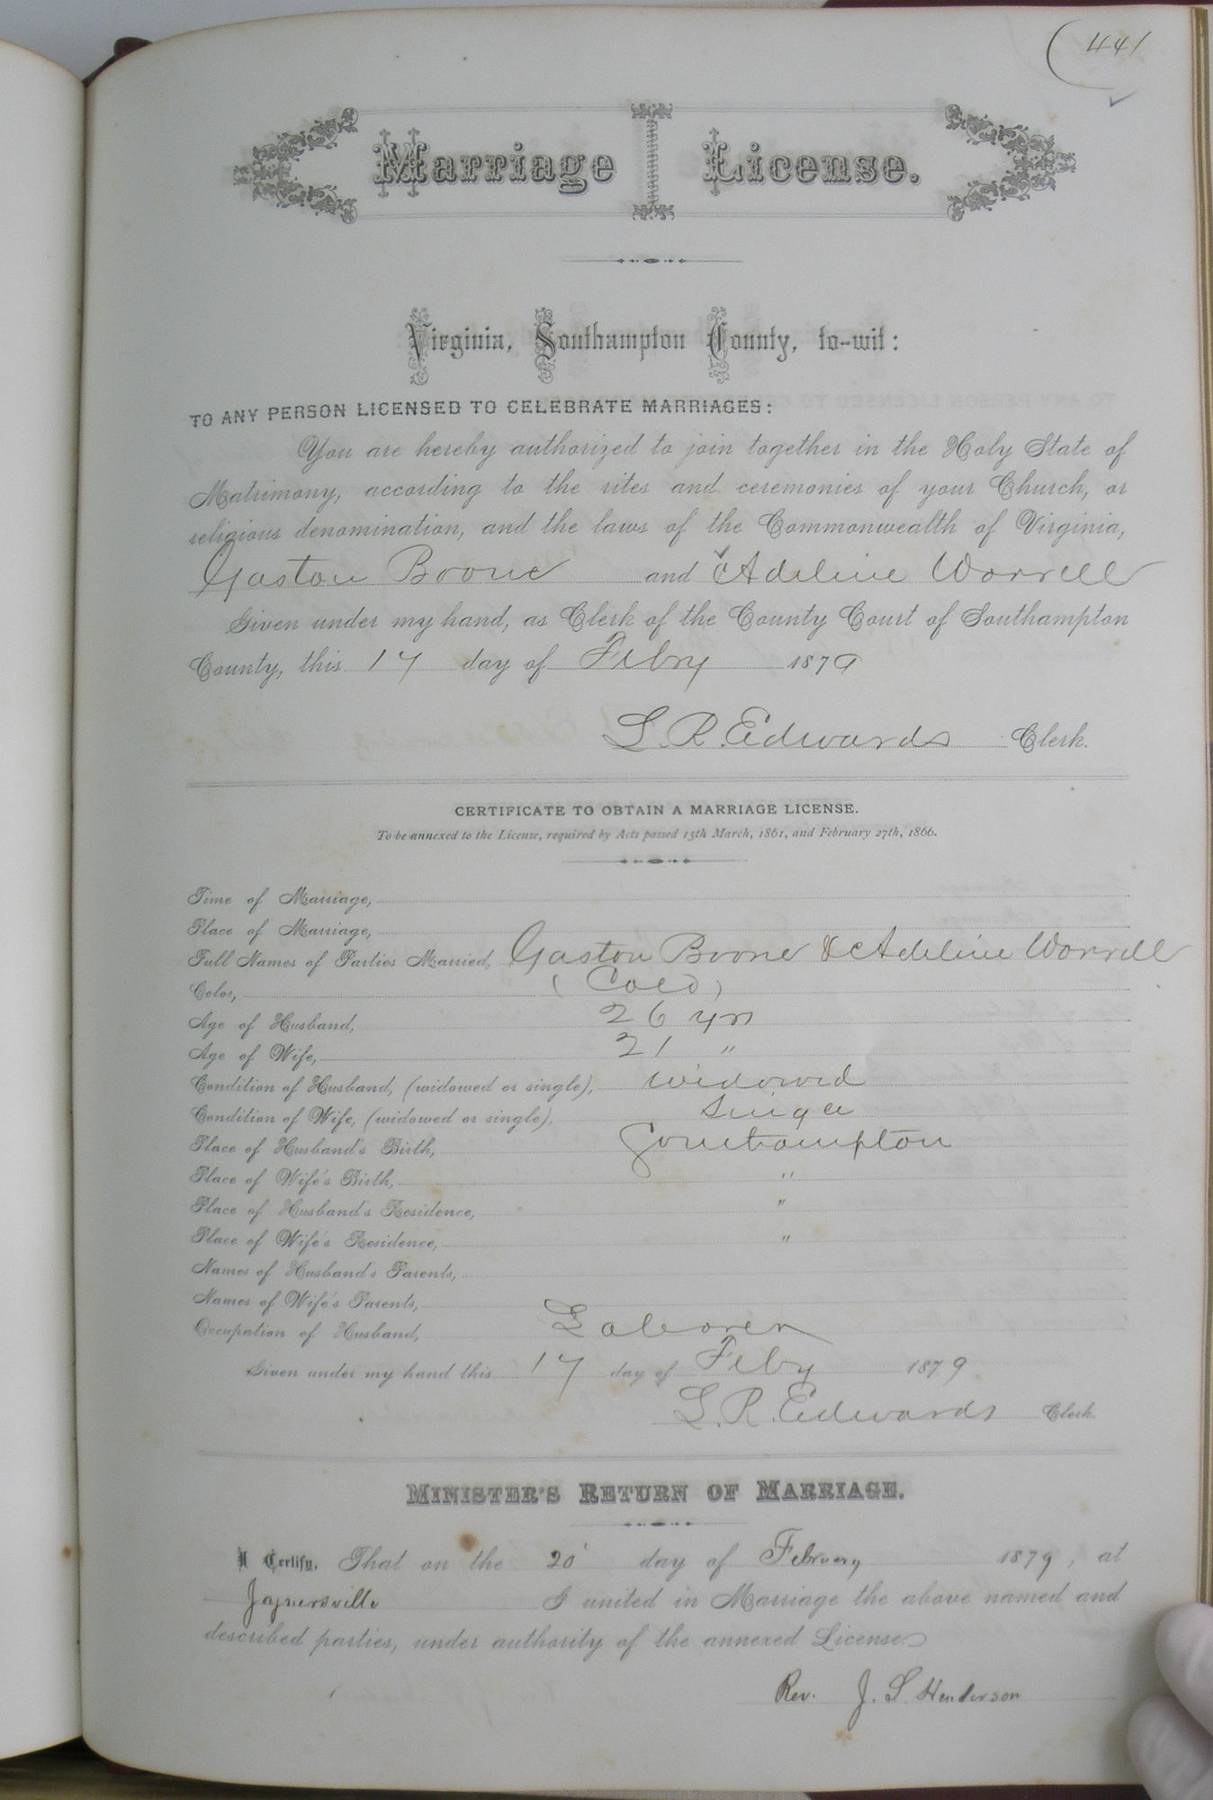 441
Marriage License.
Virginia, Southampton County, to-wit:
TO ANY PERSON LICENSED TO CELEBRATE MARRIAGES:
You are hereby authorized to join together in the Holy State of
Matrimony, according to the rites and ceremonies of your Church, or
religious denomination, and the laws of the Commonwealth of Virginia,
Gaston Boone and Adeline Worrell
Given under my hand, as Clerk of the County Court of Southampton
County, this 17 day of Febry 1879
L. R. Edwards Clerk.
CERTIFICATE TO OBTAIN A MARRIAGE LICENSE.
To be annexed to the License, required by Acts passed 15th March, 1861, and February 27th, 1866.
Time of Marriage,
Place of Marriage,
Full Names of Parties Married, Gaston Boone & Adeline Worrell
Color, (Cold)
Age of Husband, 26 yrs
Age of Wife, 21 "
Condition of Husband, (widowed or single), widowed
Condition of Wife, (widowed or single), Single
Place of Husband's Birth, Southampton
Place of Wife's Birth, "
Place of Husband's Residence, "
Place of Wife's Residence, "
Names of Husband's Parents,
Names of Wife's Parents,
Occupation of Husband, Laborer
Given under my hand this 17 day of Feby 1879.
L. R. Edwards Clerk.
MINISTER'S RETURN OF MARRIAGE.
I Certify, That on the 20 day of February 1879, at
Joynersville I united in Marriage the above named and
described parties, under authority of the annexed License.
Rev. J. S. Henderson